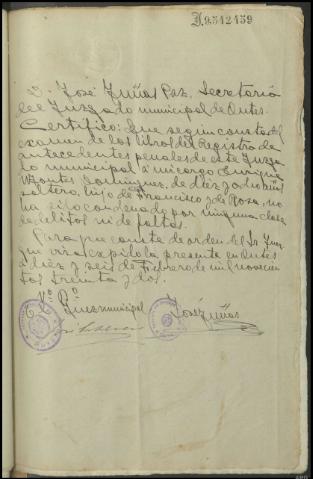 J.9.512.159
D. José Zuñas Paz, Secretario
del Juzgado municipal de Outes.
Certifico: Que según consta del
examen de los libros del Registro de
antecedentes penales de este Juzga-
do municipal á mi cargo Enrique
de diez y ocho años
soltero, hijo de Francisco y de Rosa, no
ha sido condenado por ninguna clase
de delitos ni de faltas.
Para que conste de orden del Sr. Juez
expido la presente en Outes
á diez y seis de Febrero, de mil novecien-
tos treinta y dos.
Vº Bº
El Juez municipal
José Zuñas